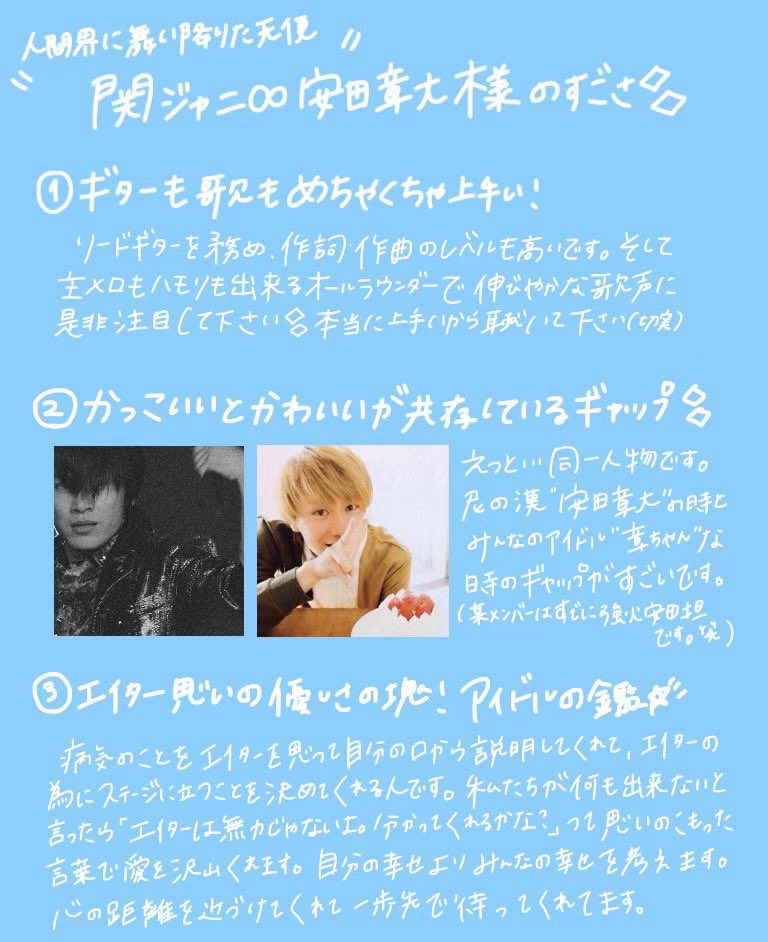 人間界に舞い降りた天使
関ジャニ∞安田章大様のすごさ
①ギターも歌もめちゃくちゃ上手い!
リードギターを務め、作詞作曲のレベルも高いです。そして
主メロもハモリも出来るオールラウンダーで伸びやかな歌声に
是非注目して下さい 本当に上手いから聴いて下さい(切実)
②かっこいいとかわいいが共存しているギャップ
えっと…同一人物です。
尼の漢"安田章大"の時と
みんなのアイドル"章ちゃん"な
時のギャップがすごいです。
(某メンバーはすでに強火安田担
です。笑)
③エイター思いの優しさの塊!アイドルの鑑
病気のことをエイターを思って自分の口から説明してくれて、エイターの
為にステージに立つことを決めてくれる人です。私たちが何も出来ないと
言ったら「エイターは無力じゃないよ。分かってくれるかな?」って思いのこもった
言葉で愛を沢山くれます。自分の幸せよりみんなの幸せを考えます。
心の距離を近づけてくれて一歩先で待ってくれてます。